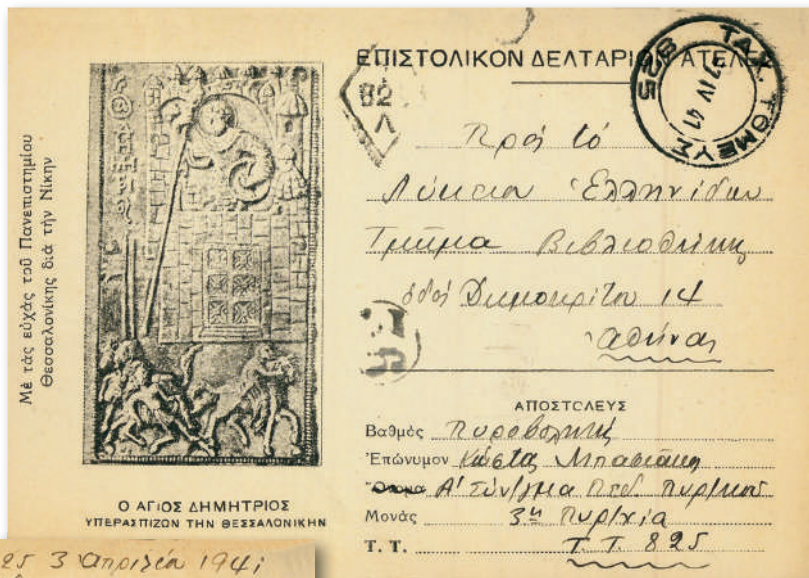 Μὲ τὰς εὐχὰς τοῦ Πανεπιστημίου
Θεσσαλονίκης διὰ τὴν Νίκην
Ο ΑΓΙΟΣ ΔΗΜΗΤΡΙΟΣ
ΥΠΕΡΑΣΠΙΖΩΝ ΤΗΝ ΘΕΣΣΑΛΟΝΙΚΗΝ
ΕΠΙΣΤΟΛΙΚΟΝ ΔΕΛΤΑΡΙΟΝ ΑΤΕΛΕΣ
ΤΑΧ. ΤΟΜΕΥΣ 825
7 IV 41
82
Λ
Πρὸς τὸ
Λύκειον Ἑλληνίδων
Τμῆμα Βιβλιοθήκης
ὁδὸς Δημοκρίτου 14
Ἀθήνας
ΑΠΟΣΤΟΛΕΥΣ
Βαθμὸς Πυροβολητὴς
Ἐπώνυμον Κώστας
Ὄνομα Α' Σύν/γμα Πεδ. Πυρ/κοῦ
Μονὰς 3η Πυρ/χία
Τ. Τ. Τ. Τ. 825
25 3 Ἀπριλίου 1941